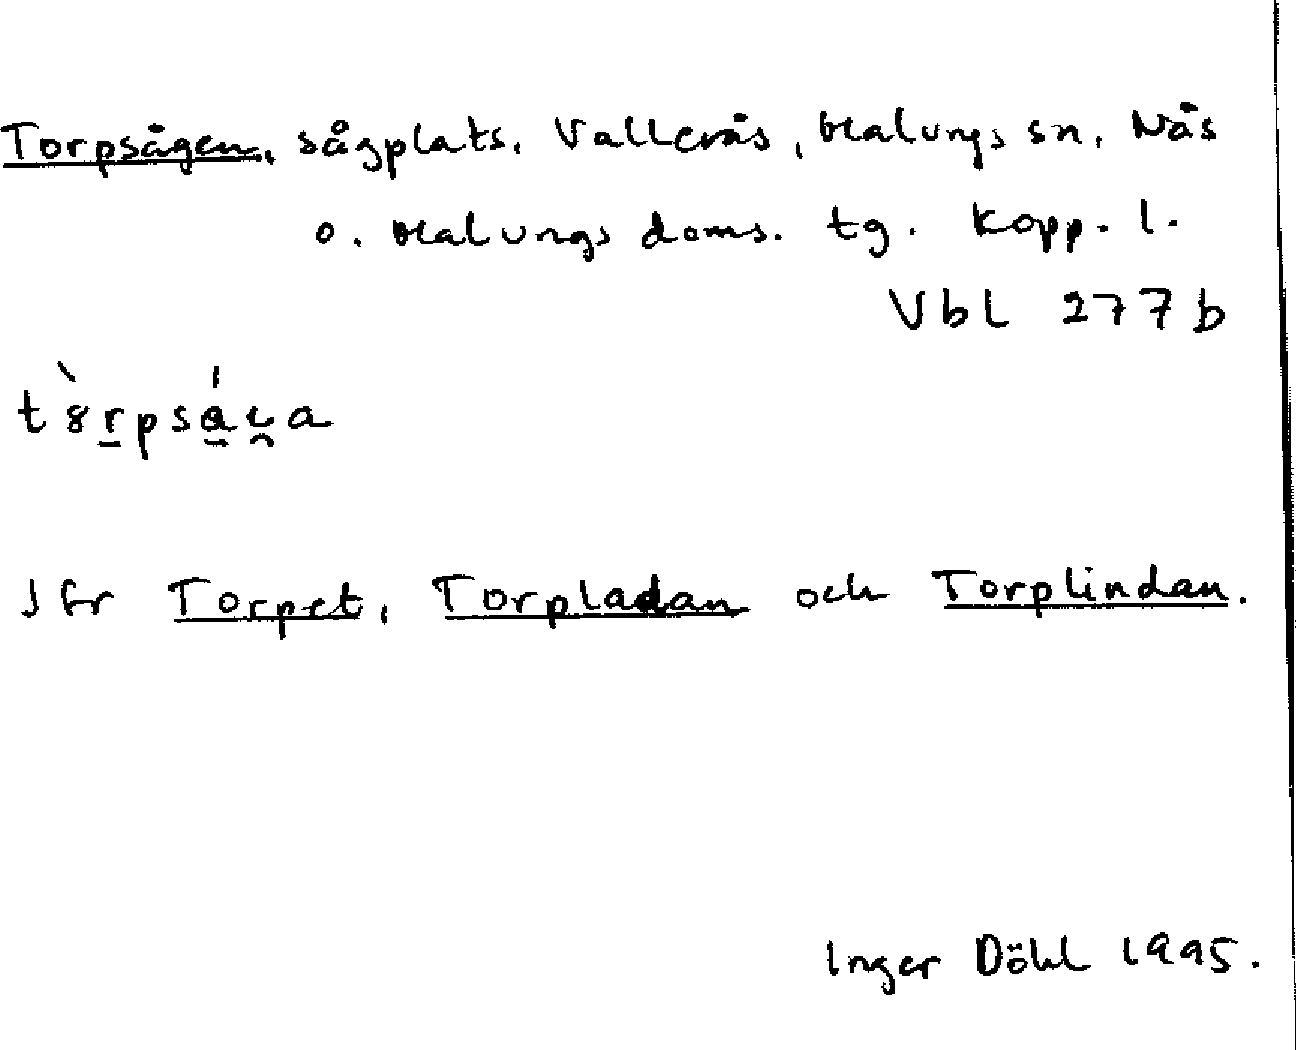 Torpsågen, sågplats, Vallerås, Malungs sn, Näs
o. Malungs doms. tg. Kopp. l.
Vbl 277b
Jfr Torpet, Torpladan och Torplindan.
Inger Döhl 1995.